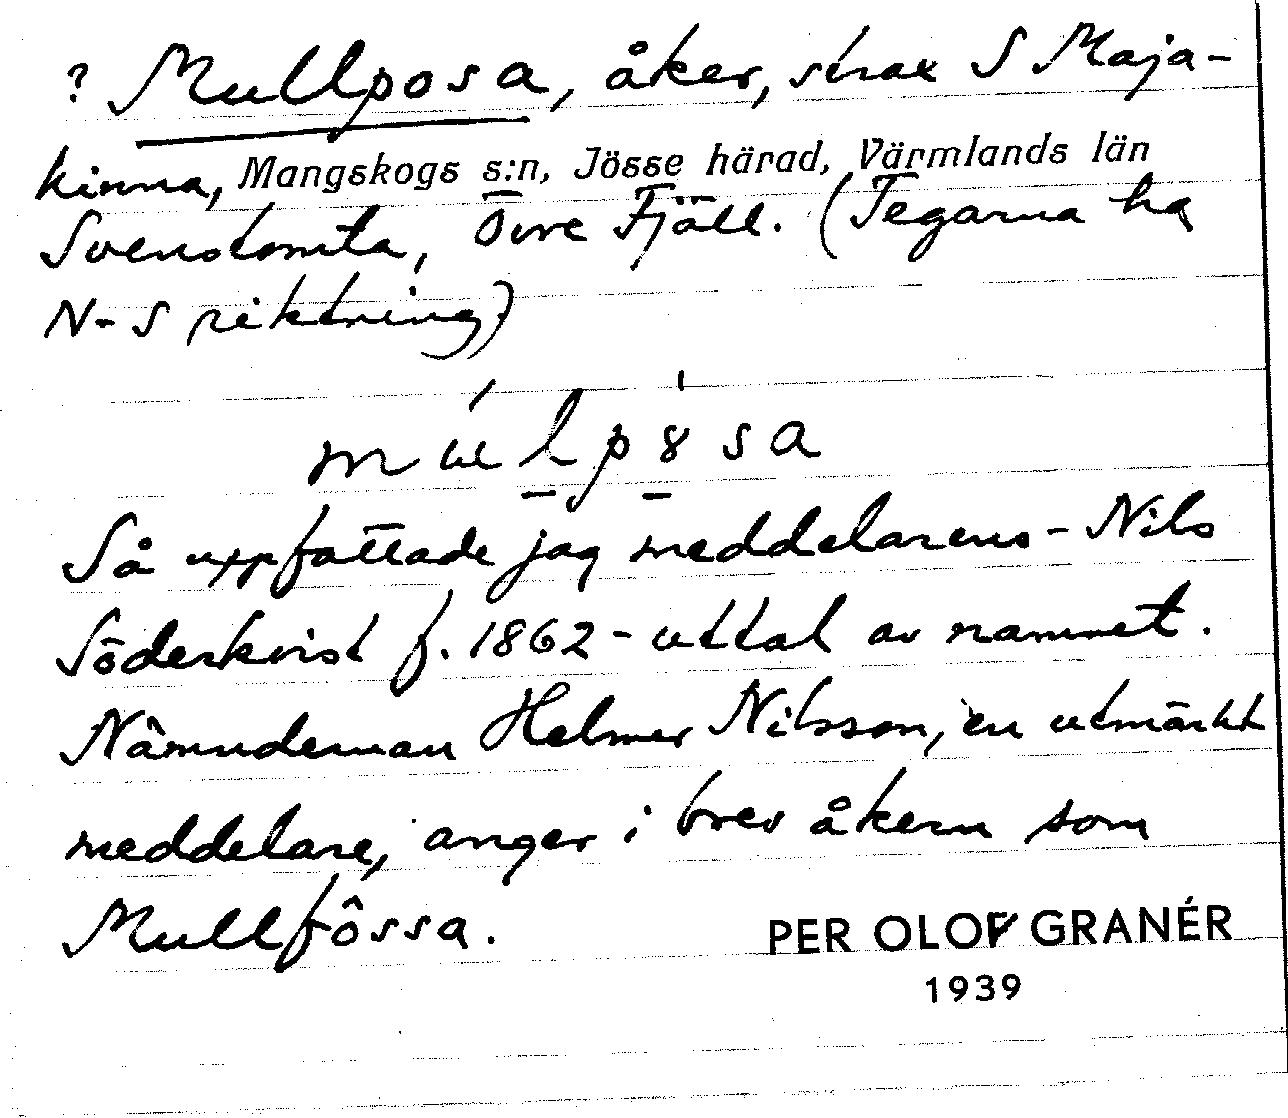 ? Mullposa, åker, strax S Maja-
kinna, Mangskogs s:n, Jösse härad, Värmlands län
Svenstomta, Övre Fjäll. (Tegarna ha
N-S riktning)
múlpósa
Så uppfattade jag meddelarens - Nils
Söderkvist f. 1862 - uttal av namnet.
Nämndeman Helmer Nilsson, en utmärkt
meddelare, anger i brev åkern som
Mullfôssa.
PER OLOF GRANÉR
1939